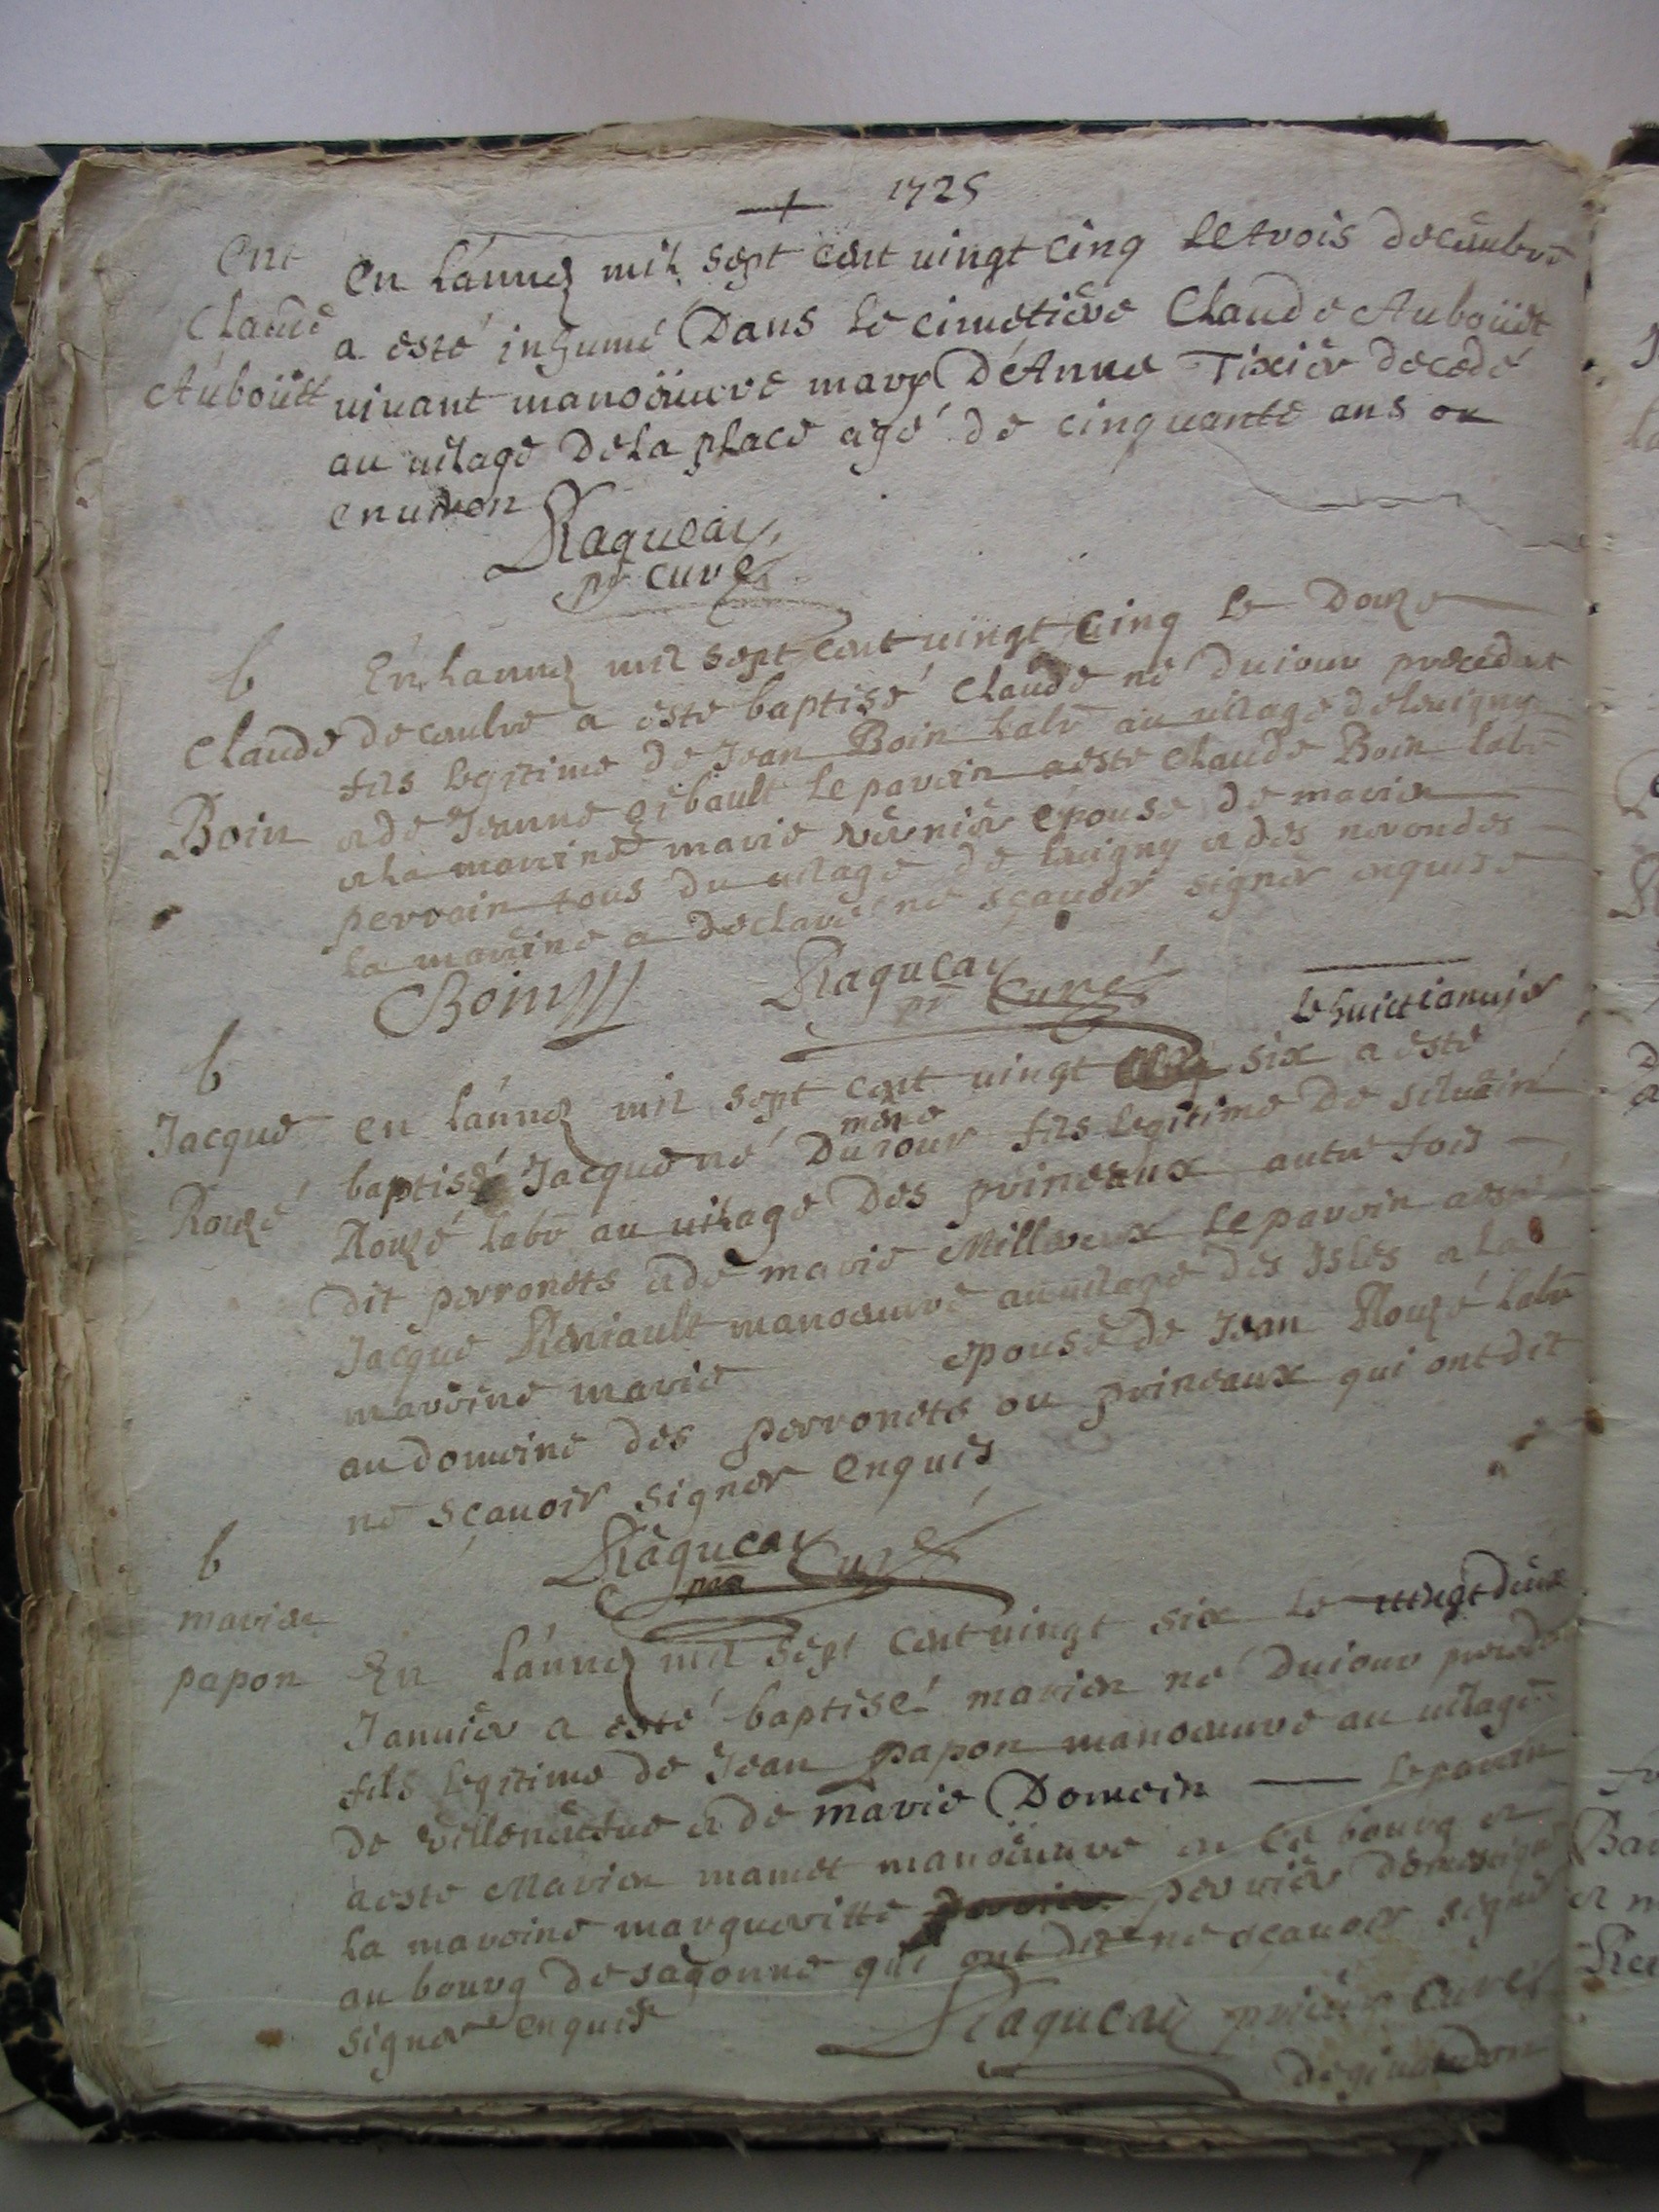 1725
Ent
Claude
Auboüet
En l'année mil sept cent vingt cinq le trois decembre
a esté inhumé Dans le cimetière Claude Auboüet
vivant manoeuvre mary D'Anne Tixier decedé
au vilage De la place agé de cinquante ans ou
environ
Ragueau
pr curé
b
Claude
Boin
En l'année mil sept cent vingt cinq le Douze
decembre a esté baptisé Claude né du iour precedent
fils legitime de Jean Boin labr au vilage de
et de Jeanne gibault le parein a esté Claude Boin labr
et la mareine marie vernier epouse de marien
perrain tous du vilage de et des
la mareine a declaré ne sçavoir signer enquise
Boin
Ragueau
pr Curé
b
Jacque
Rouzé
le huict ianvier
en l'année mil sept cent vingt six a esté
mesme
baptisé Jacque né Du iour fils legitime De silvain
Rouzé labr au vilage Des prineaux autre fois
Dit perronets et de marie Millereux le parein a esté
Jacque Reniault manoeuvre au vilage des Isles et la
mareine marie epouse de Jean Rouzé labr
au domeine des perronets ou prineaux qui ont dit
ne sçavoir signer Enquis
Ragueau
pr Curé
b
marien
papon
En l'année mil sept cent vingt six le vingt deux
Janvier a esté baptisé marien né Du iour precedent
fils legitime de Jean papon manoeuvre au vilage
de villeneufue et de marie Domein le parein
a esté Marien mamet manoeuvre en ce bourg et
la mareine margueritte perrier domestique
au bourg de sagonne qui ont dit ne sçavoir signé
signer enquis
Ragueau prieur Curé
de givardon